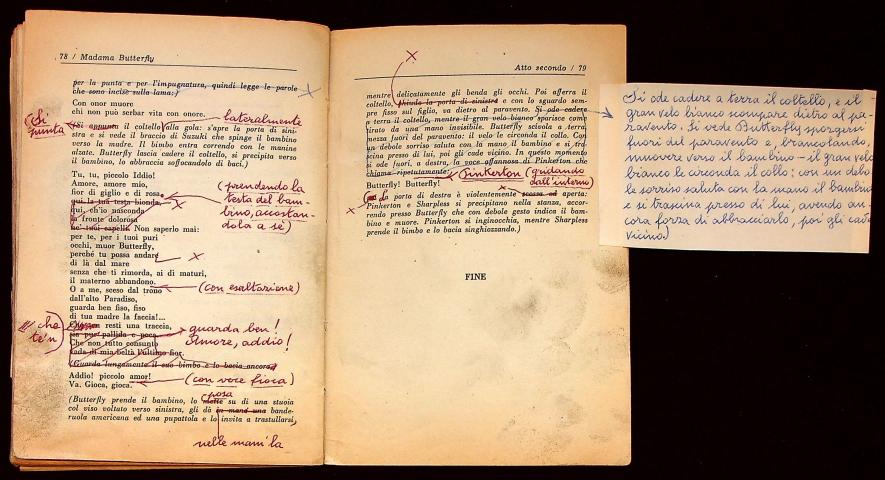 78 / Madama Butterfly
per la punta e per l'impugnatura, quindi legge le parole
che sono incise sulla lama:)
Con onor muore
chi non può serbar vita con onore.
lateralmente
(Si
punta
il coltello alla gola: s'apre la porta di sini-
stra e si vede il braccio di Suzuki che spinge il bambino
verso la madre. Il bimbo entra correndo con le manine
alzate. Butterfly lascia cadere il coltello, si precipita verso
il bambino, lo abbraccia soffocandolo di baci.)
Tu, tu, piccolo Iddio!
Amore, amore mio,
fior di giglio e di rosa,
qui la tua testa bionda
qui, ch'io nasconda
la fronte dolorosa
ne' tuoi capelli. Non saperlo mai:
(prendendo la
testa del bam-
bino, accostan-
dola a sé)
per te, per i tuoi puri
occhi, muor Butterfly,
perché tu possa andare
di là dal mare
senza che ti rimorda, ai di maturi,
il materno abbandono.
O a me, sceso dal trono
(con esaltazione)
dall'alto Paradiso,
guarda ben fiso, fiso
di tua madre la faccia!...
che
te'n
resti una traccia,
guarda ben!
Amore, addio!
sia pur pallida e poca.
Che non tutto consunto
vada di mia beltà l'ultimo fior.
(Guarda lungamente il suo bimbo e lo bacia ancora)
Addio! piccolo amor!
Va. Gioca, gioca.
(con voce fioca)
posa
(Butterfly prende il bambino, lo mette su di una stuoia
col viso voltato verso sinistra, gli dà in mano una bande-
ruola americana ed una pupattola e lo invita a trastullarsi,
nelle mani la
Atto secondo / 79
mentre delicatamente gli benda gli occhi. Poi afferra il
coltello, chiude la porta di sinistra e con lo sguardo sem-
pre fisso sul figlio, va dietro al paravento. Si ode cadere
a terra il coltello, mentre il gran velo bianco sparisce come
tirato da una mano invisibile. Butterfly scivola a terra,
mezza fuori del paravento: il velo le circonda il collo. Con
un debole sorriso saluta con la mano il bambino e si tra-
scina presso di lui, poi gli cade vicino. In questo momento
si ode fuori, a destra, la voce affannosa di Pinkerton che
chiama ripetutamente:)
Pinkerton (gridando
dall'interno)
Butterfly! Butterfly!
la porta di destra è violentemente scossa ed aperta:
Pinkerton e Sharpless si precipitano nella stanza, accor-
rendo presso Butterfly che con debole gesto indica il bam-
bino e muore. Pinkerton si inginocchia, mentre Sharpless
prende il bimbo e lo bacia singhiozzando.)
FINE
Si ode cadere a terra il coltello, e il
gran velo bianco scompare dietro al pa-
ravento. Si vede Butterfly sporgersi
fuori del paravento e, brancolando,
muovere verso il bambino - il gran velo
bianco le circonda il collo: con un debo
le sorriso saluta con la mano il bambino
e si trascina presso di lui, avendo an-
cora forza di abbracciarlo, poi gli cade
vicino.)